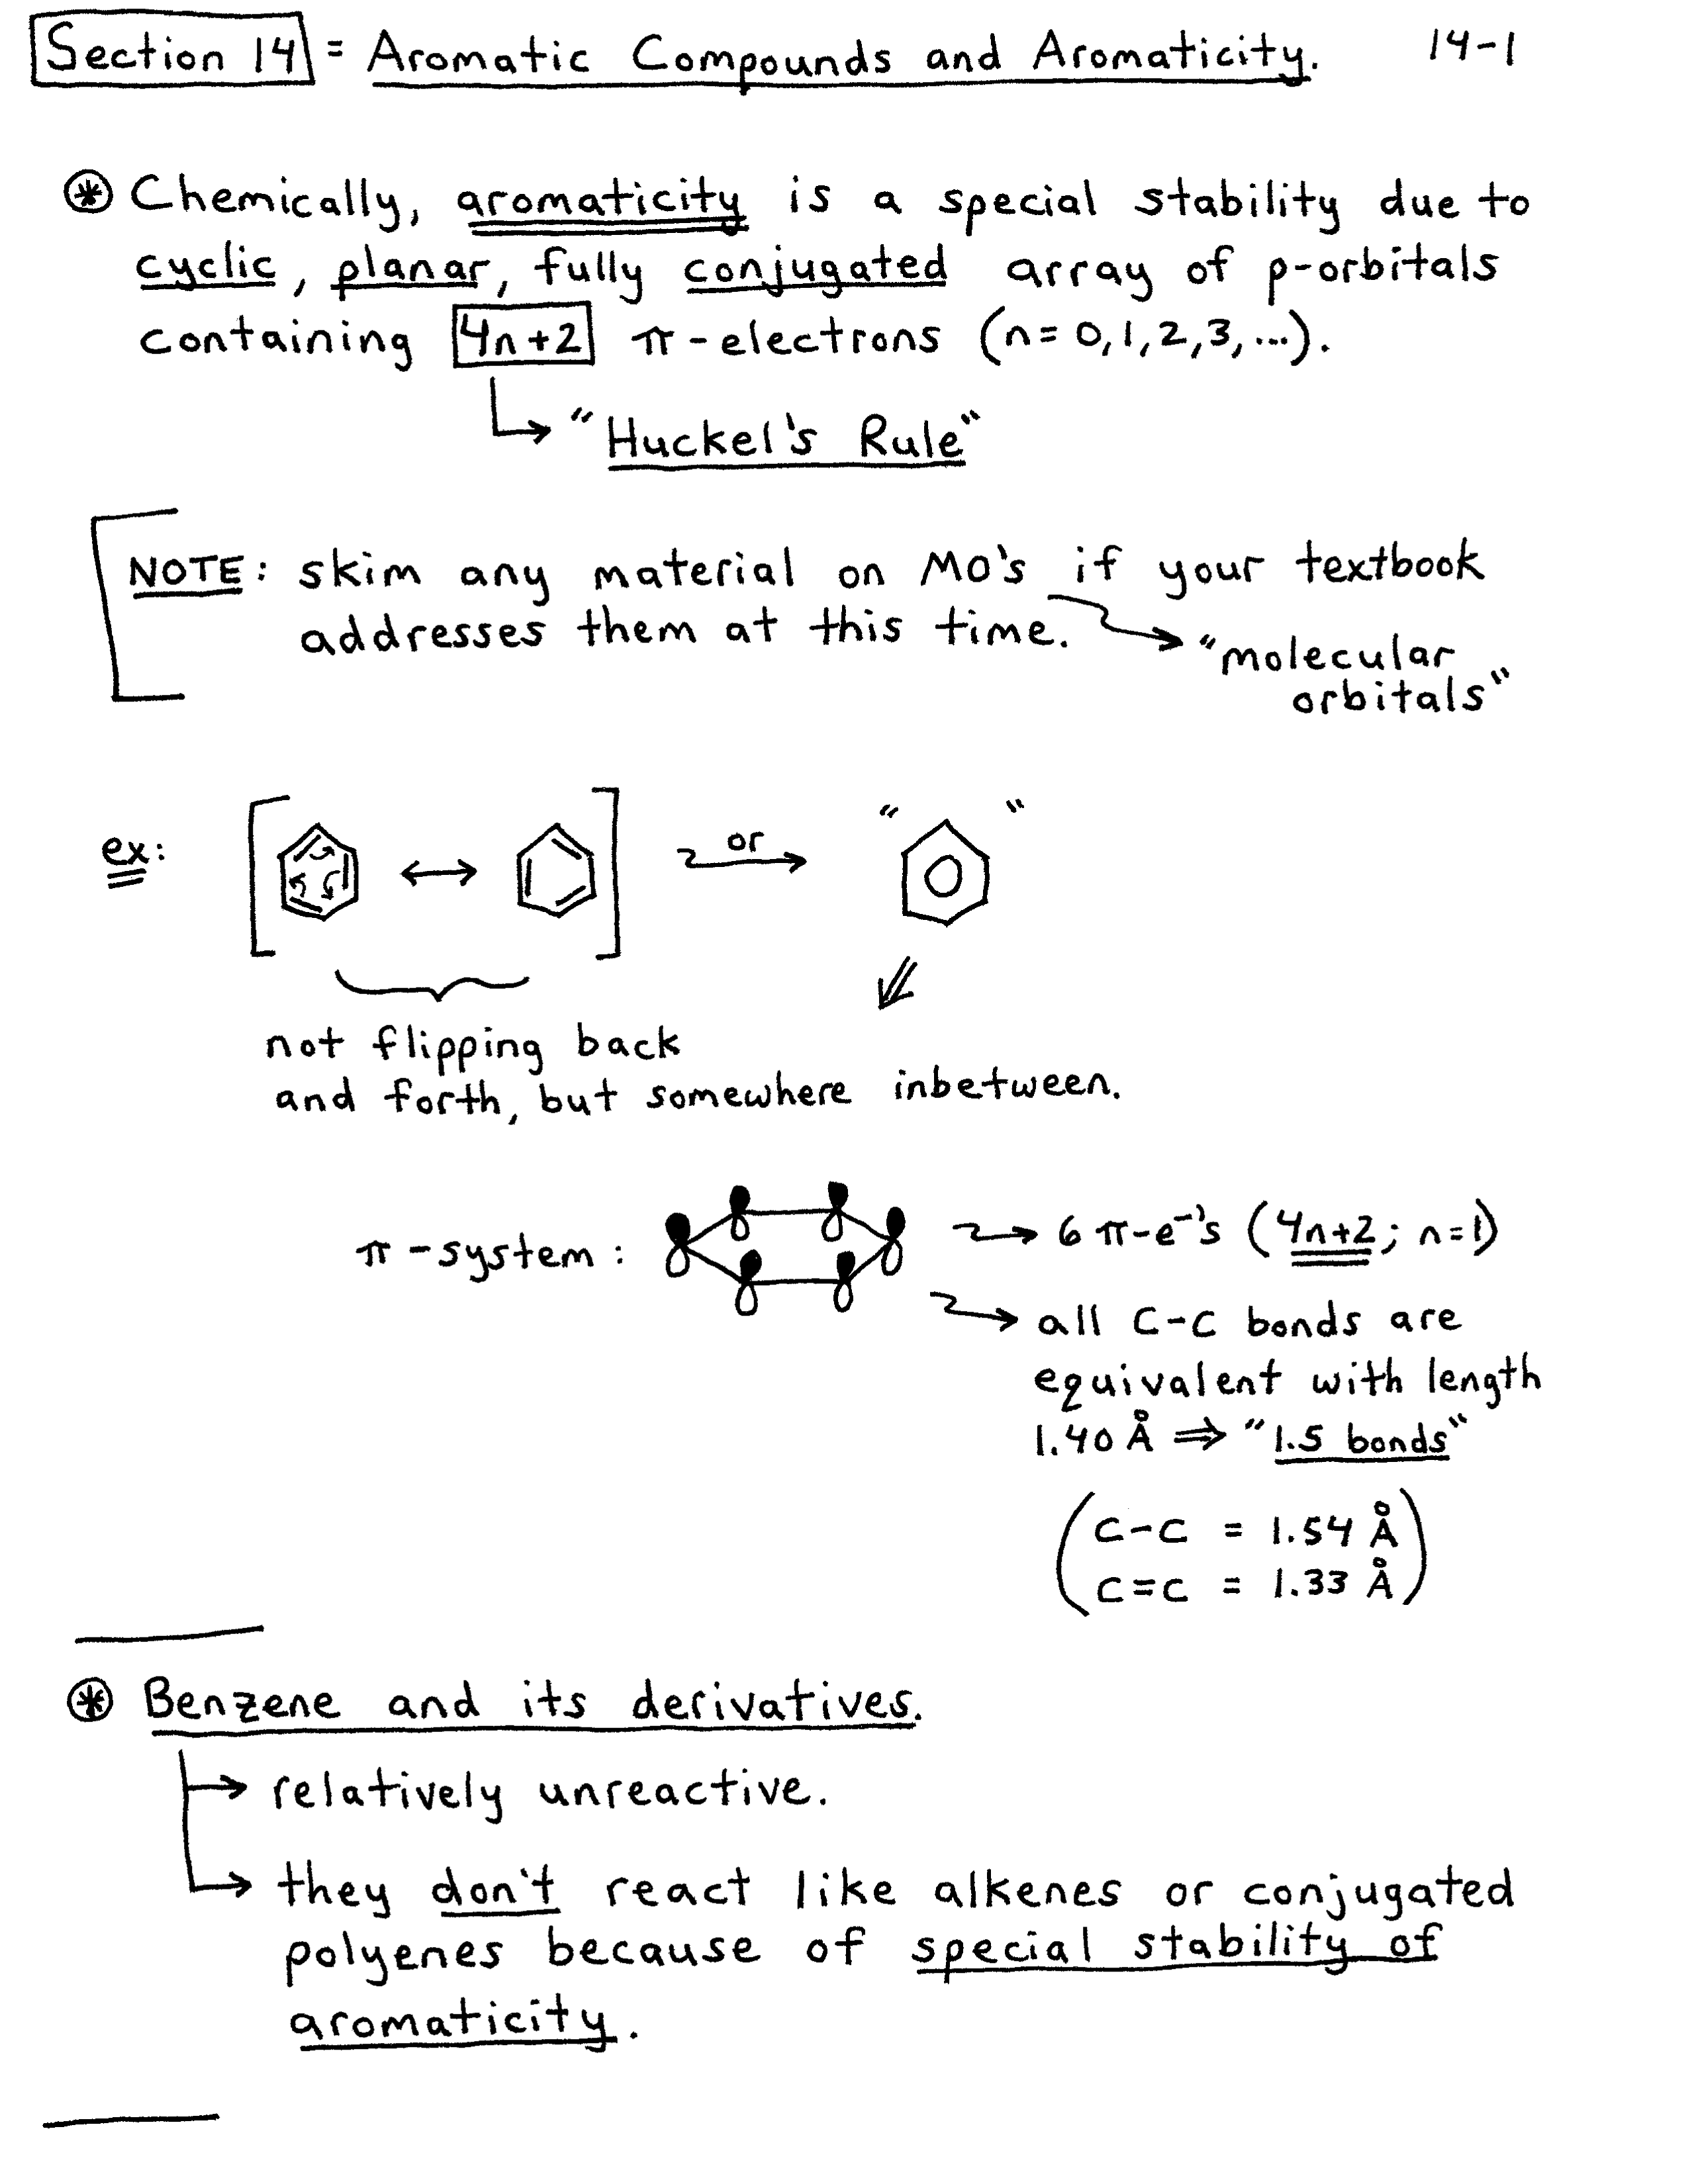 Section 14 = Aromatic Compounds and Aromaticity. 14-1
⊛ Chemically, aromaticity is a special stability due to
cyclic, planar, fully conjugated array of p-orbitals
containing 4n+2 π-electrons (n= 0,1,2,3,...).
"Huckel's Rule"
NOTE: skim any material on MO's if your textbook
addresses them at this time.
"molecular
orbitals"
ex: [ ↔ ] or " "
not flipping back
and forth, but somewhere inbetween.
π-system: → 6 π-e⁻'s (4n+2; n=1)
→ all C-C bonds are
equivalent with length
1.40 Å ⇒ "1.5 bonds"
(C-C = 1.54 Å
C=C = 1.33 Å)
⊛ Benzene and its derivatives.
→ relatively unreactive.
→ they don't react like alkenes or conjugated
polyenes because of special stability of
aromaticity.